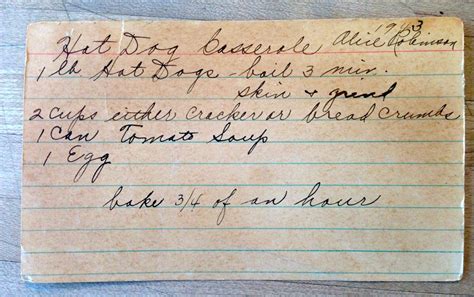 1943
Hot Dog Casserole Alice Robinson
1 lb Hot Dogs - boil 3 min.
skin + grind
2 cups either cracker or bread crumbs
1 can Tomato Soup
1 Egg
bake 3/4 of an hour